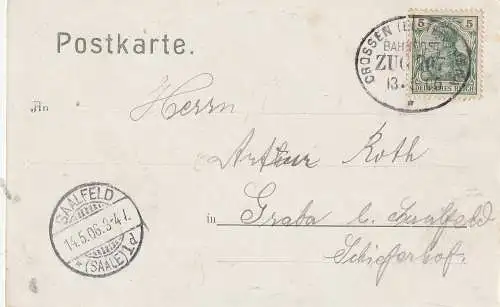 Postkarte.
5 5
DEUTSCHES REICH
CROSSEN
BAHNPOST
ZUG
13.
An
Herrn
Arthur Roth
in Graba b. Saalfeld
Schieferhof.
SAALFELD
14.5.06.3-4 N.
* (SAALE) 1d